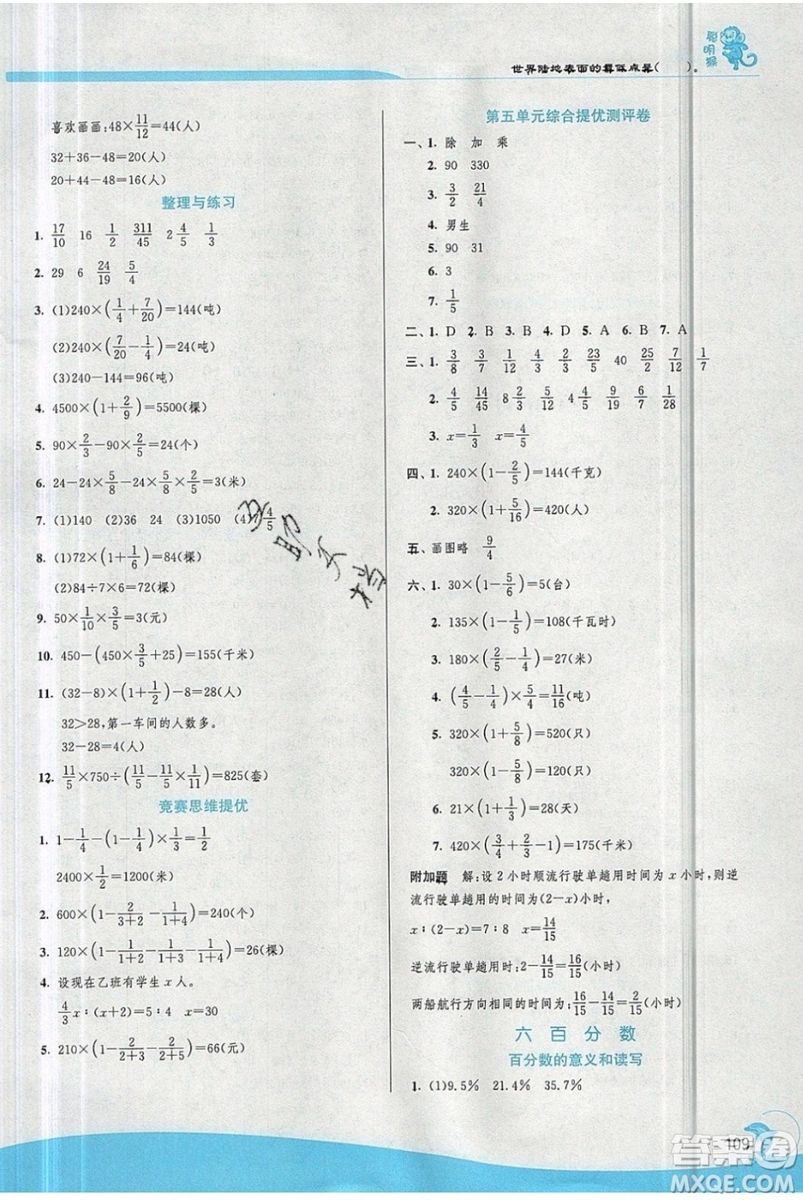 聪明猴
世界陆地表面的最低点是(　　)。
喜欢画画:48×11/12=44(人)
32+36-48=20(人)
20+44-48=16(人)
整理与练习
1. 17/10　16　1/2　311/45　2 4/5　1/3
2. 29　6　24/19　5/4
3. (1)240×(1/4+7/20)=144(吨)
(2)240×(7/20-1/4)=24(吨)
(3)240-144=96(吨)
4. 4500×(1+2/9)=5500(棵)
5. 90×2/3-90×2/5=24(个)
6. 24-24×5/8-24×5/8×2/3=3(米)
7. (1)140　(2)36　24　(3)1050　(4)4/5
8. (1)72×(1+1/6)=84(人)
(2)84÷7×6=72(人)
9. 50×1/10×3/5=3(元)
10. 450-(450×3/5+25)=155(千米)
11. (32-8)×(1+1/2)-8=28(人)
32>28,第一车间的人数多。
32-28=4(人)
12. 11/5×750÷(11/5-11/5×1/11)=825(套)
竞赛思维提优
1. 1-1/4-(1-1/4)×1/3=1/2
2400×1/2=1200(米)
2. 600×(1-2/3+2-1/1+4)=240(棵)
3. 120×(1-1/1+2-1/1+3-1/1+4)=26(棵)
4. 设现在乙班有学生x人。
4/3x∶(x+2)=5∶4　x=30
5. 210×(1-2/2+3-2/2+5)=66(元)
第五单元综合提优测评卷
一、1. 除　加　乘
2. 90　330
3. 3/2　21/4
4. 男生
5. 90　31
6. 3
7. 1/5
二、1. D　2. B　3. B　4. D　5. A　6. B　7. A
三、1. 3/8　3/7　9/5　2/3　23/5　40　25/2　7/12　1/7
2. 4/5　14/45　8 2/3　5/12　4 4/5　9/19　6/7　1/28
3. x=1/3　x=4/5
四、1. 240×(1-2/5)=144(千克)
2. 320×(1+5/16)=420(人)
五、画图略　9/4
六、1. 30×(1-5/6)=5(台)
2. 135×(1-1/5)=108(千瓦时)
3. 180×(2/5-1/3)=12(米)
4. (4/5-1/4)×5/4=11/16(吨)
5. 320×(1+5/8)=520(只)
320×(1+5/8)=520(只)
6. 21×(1+1/3)=28(天)
7. 420×(3/4+2/3-1)=175(千米)
附加题　解:设2小时顺流行驶单趟用时间为x小时,则逆
流行驶单趟用的时间为(2-x)小时。
x∶(2-x)=7∶8　x=14/15
逆流行驶单趟用时间:2-14/15=16/15(小时)
两船航行方向相同的时间为:16/15-14/15=2/15(小时)
六　百分数
百分数的意义和读写
1. (1)9.5%　21.4%　35.7%
109
答案圈
MXQE.COM